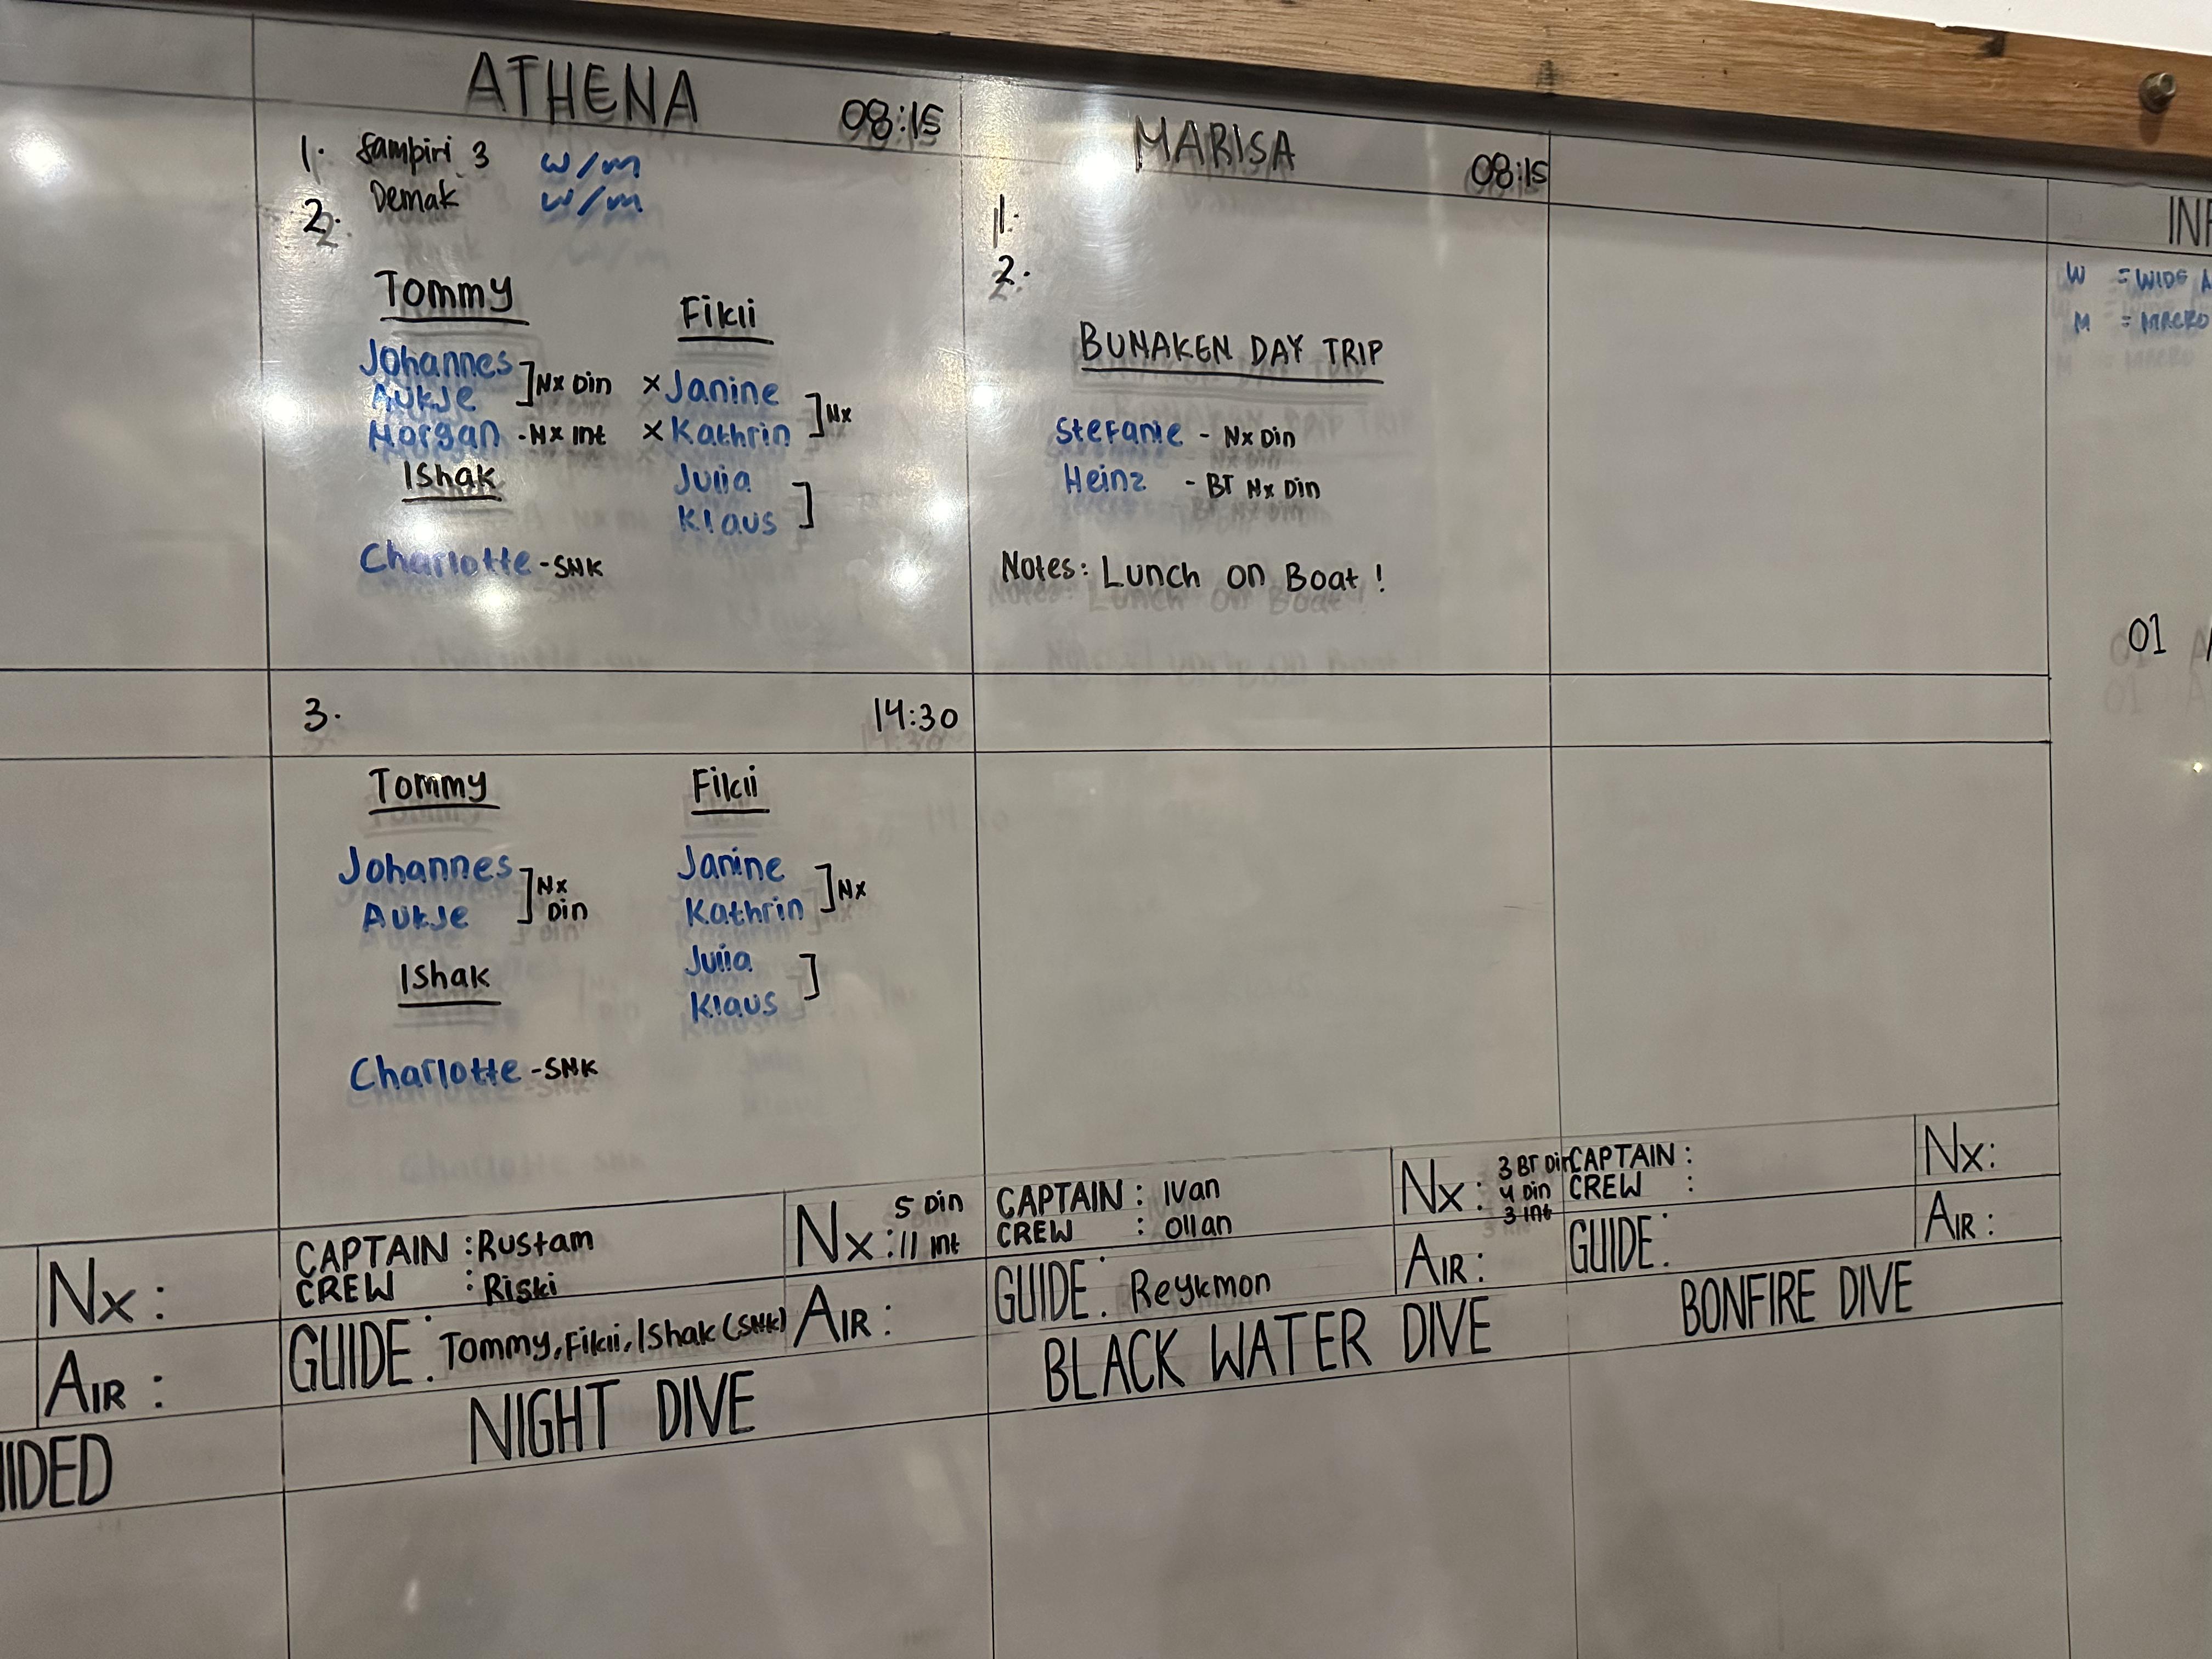 ATHENA 08:15
1. Sampiri 3 W/M
2. Demak W/M
Tommy
Johannes
Aukje
] Nx Din
Morgan - Nx Int
Ishak
Charlotte - SNK
Fikii
x Janine
x Kathrin
] Nx
Julia
Klaus
]
MARISA 08:15
1.
2.
BUNAKEN DAY TRIP
Stefanie - Nx Din
Heinz - BT Nx Din
Notes: Lunch on Boat!
W = WIDE
M = MACRO
01
3. 14:30
Tommy
Johannes
Aukje
] Nx Din
Ishak
Charlotte - SNK
Fikii
Janine
Kathrin
] Nx
Julia
Klaus
]
Nx:
AIR:
CAPTAIN : Rustam
CREW : Riski
Nx: 5 Din
11 Int
GUIDE: Tommy, Fikii, Ishak (SNK)
AIR:
NIGHT DIVE
CAPTAIN : Ivan
CREW : Ollan
Nx: 3 BT Din
4 Din
3 Int
GUIDE: Reykmon
AIR:
BLACK WATER DIVE
CAPTAIN :
CREW :
Nx:
GUIDE:
AIR:
BONFIRE DIVE